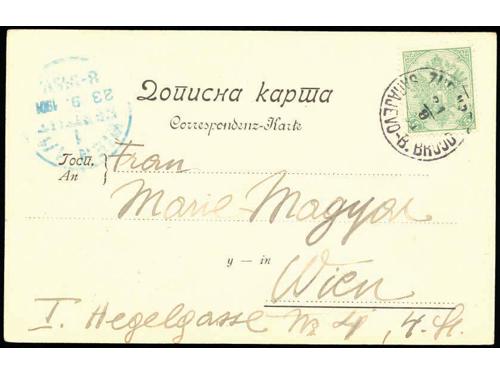 Дописна карта
Correspondenz-Karte
23 9. 1901
SARAJEVO-B. BROD
Госп.
An
Frau
Marie Magyar
у — in
Wien
I. Hegelgasse № 4, 4. St.